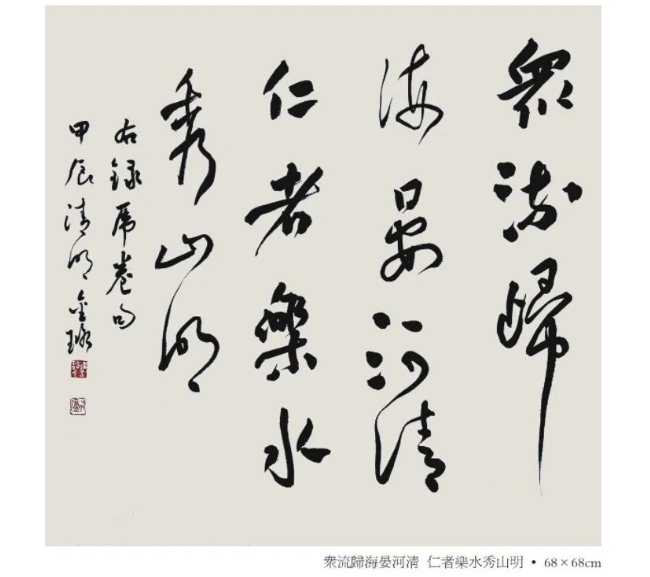 眾流歸
海晏河清
仁者樂水
秀山明
右録卷句
甲辰清明金
衆流歸海晏河清 仁者樂水秀山明 • 68×68cm